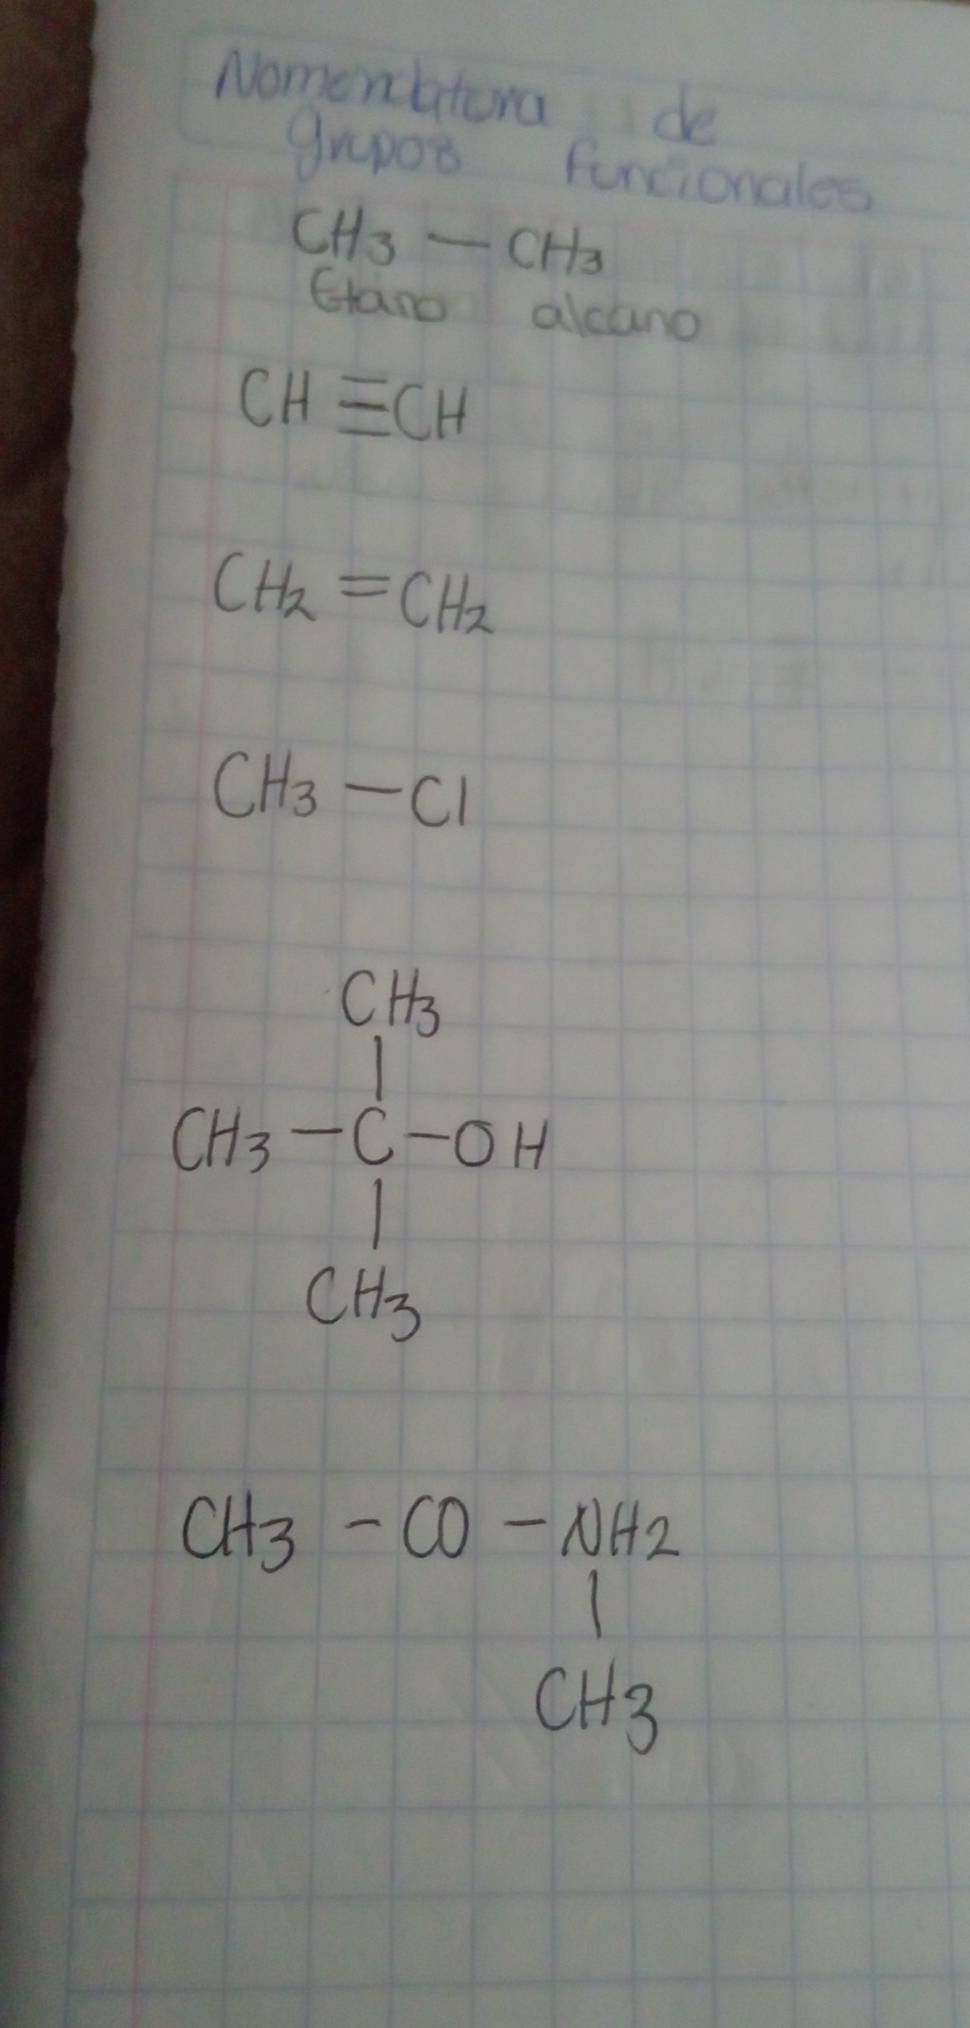 Nomenclatura de
grupos funcionales
CH3 — CH3
Etano alcano
CH ≡ CH
CH2 = CH2
CH3 — Cl
CH3
|
CH3 — C — OH
|
CH3
CH3 - CO - NH2
|
CH3